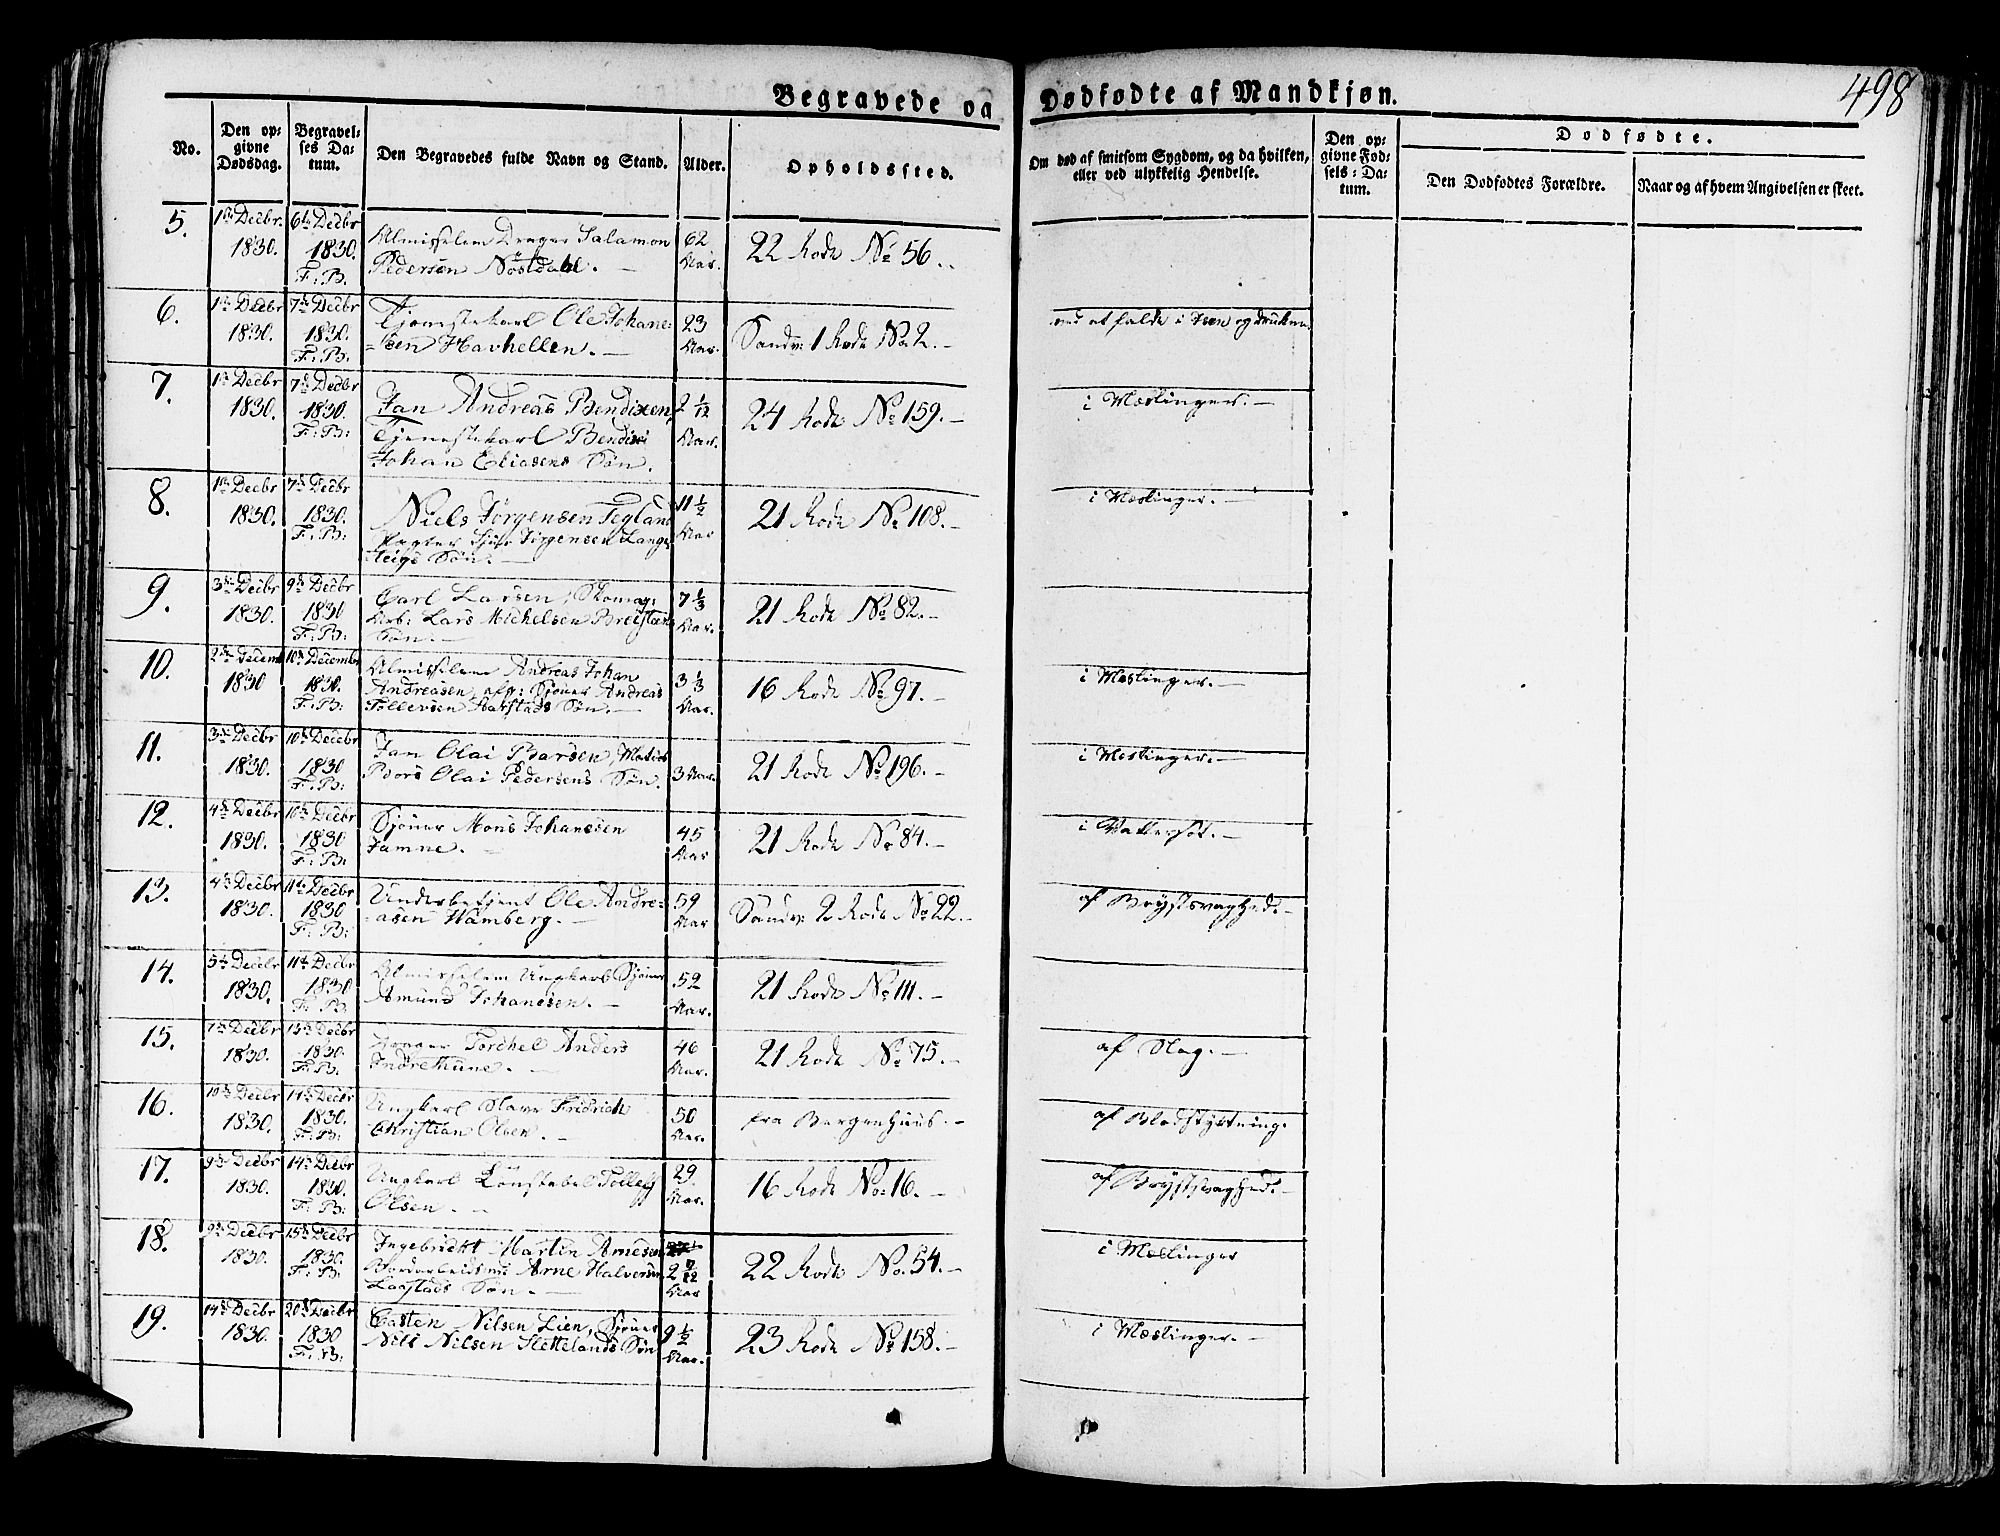 498
Begravede og Dødfødte af Mandkjøn.
No.
Den op-
givne
Dødsdag.
Begravel-
ses Da-
tum.
Den Begravedes fulde Navn og Stand.
Alder.
Opholdssted.
Om død af smitsom Sygdom, og da hvilken,
eller ved ulykkelig Hendelse.
Den op-
givne Fød-
sels-Da-
tum.
Dødfødte.
Den Dødfødtes Forældre.
Naar og af hvem Angivelsen er skeet.
5. 1te Decbr. 1830. 6te Decbr 1830. F. B.
Almisselem Drager Salamon
Pedersen Nøstdahl. —
62 Aar.
22 Rode No 56.
6. 1te Decbr 1830. 7de Decbr 1830. F. B.
Tjenestekarl Ole Johane-
sen Havhellen. —
23 Aar.
Sandv: 1 Rode No. 2. —
ved at falde i Søen og drukne
7. 1te Decbr 1830. 7de Decbr 1830. F. B:
Jan Andreas Bendixen,
Tjenestekarl Bendix
Johan Eliasens Søn.
2 1/12 Aar.
24 Rode No 159. —
i Mæslinger. —
8. 1te Decbr 1830. 7de Decbr 1830. F. B:
Niels Jørgensen Tegland
Jørgensen Lange-
teigs Søn. —
11 1/2 Aar
21 Rode No 108. —
i Mæslinger. —
9. 3de Decbr 1830. 9de Decbr 1830 F. B:
Carl Larsen, Skomag:
Arb: Lars Michelsen
Søn. —
7 1/3 Aar.
21 Rode No. 82. —
10. 2den Decemb 1830 10de Decembr 1830. F. B:
Almisselem Andreas Johan
Andreasen, afg: Sjøuer Andreas
Tollevsen Aarstads Søn. —
3 1/3 Aar.
16 Rode No. 97. —
i Mæslinger. —
11. 3de Decbr 1830. 10de Decbr 1830 F. B:
Jan Olai Barsen, Matros
Børs Olai Pedersens Søn.
3 Aar.
21 Rode No. 196. —
i Mæslinger. —
12. 4de Decbr 1830. 10de Decbr 1830 F. B:
Sjøuer Mons Johannsen
Jamne. —
45 Aar
21 Rode No 84. —
i Vattersot. —
13. 4de Decbr 1830. 11te Decbr 1830 F. B:
Underbetjent Ole Andre-
asen Hamberg. —
59 Aar
Sandv: 2 Rode No 22. —
af Brystsvaghed. —
14. 5te Decbr 1830. 11te Decbr 1830 F. B:
Almisselem Ungkarl Sjøuer
Amund Johannsen. —
52 Aar.
21 Rode No 111. —
15. 7de Decbr 1830. 13de Decbr 1830. F. B:
Drager Torchel Anders
Indrethune. —
46 Aar.
21 Rode No. 75. —
af Slag. —
16. 10de Decbr 1830. 14de Decbr 1830. F. B:
Ungkarl Slave Fridrich
Christian Olsen. —
50 Aar.
fra Bergenhuus. —
af Blodstyrtning.
17. 9de Decbr 1830. 14de Decbr 1830. F. B:
Ungkarl Constabel Tolleg
Olsen. —
29. Aar.
16 Rode No: 16. —
af Brystsvaghed. —
18. 9de Decbr 1830. 15de Decbr 1830. F. B:
Ingebricht Martin Arnesen
Arne Halvorsen
Løgstads Søn. —
2 7/12 Aar
22 Rode No. 54. —
i Mæslinger
19. 14de Decbr 1830. 20de Decbr 1830 F. B:
Casten Nilsen Lien, Sjøuer
Nils Nilsen Slettelands Søn
9 1/2 Aar.
23 Rode No 158. —
i Mæslinger. —